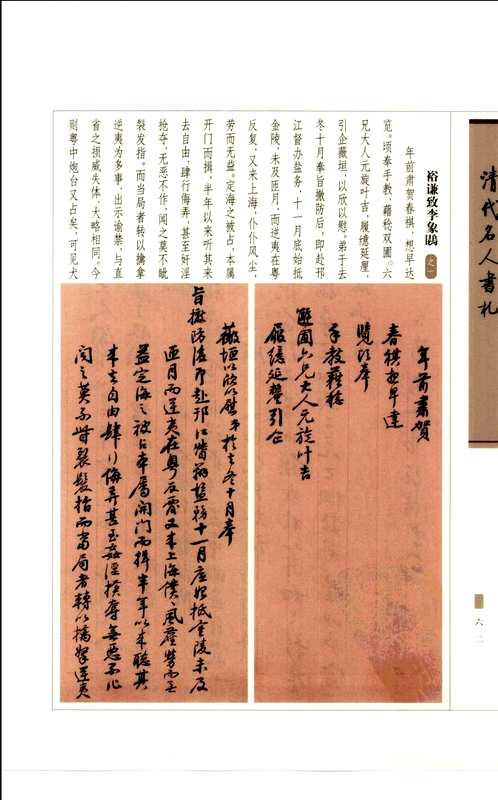 清代名人书札
六二
裕谦致李象鹍 之一
年前肃贺春祺,想早达
览。顷奉手教,藉稔双圃。六
兄大人元旋叶吉,履繶延厘,
引企薇垣,以欣以慰。弟于去
冬十月奉旨撤防后,即赴邗
江督办盐务,十一月底始抵
金陵,未及匝月,而逆夷在粤
反复,又来上海,仆仆风尘,
劳而无益。定海之被占,本属
开门而揖,半年以来听其来
去自由,肆行侮弄,甚至奸淫
抢夺,无恶不作,闻之莫不眦
裂发指。而当局者转以擒拿
逆夷为多事,出示谕禁,与直
省之损威失体,大略相同。今
则粤中炮台又占矣,可见犬
年前肅賀
春祺想早達
覽頃奉
手教藉稔
雙圃六兄大人元旋叶吉
履繶延釐引企
薇垣以欣以慰弟於去冬十月奉
旨撤防後即赴邗江督辦鹽務十一月底始抵金陵未及
匝月而逆夷在粵反覆又来上海僕僕風塵勞而無
益定海之被占本屬開門而揖半年以来聽其
来去自由肆行侮弄甚至姦淫搶奪無惡不作
聞之莫不眥裂髮指而當局者轉以擒拏逆夷